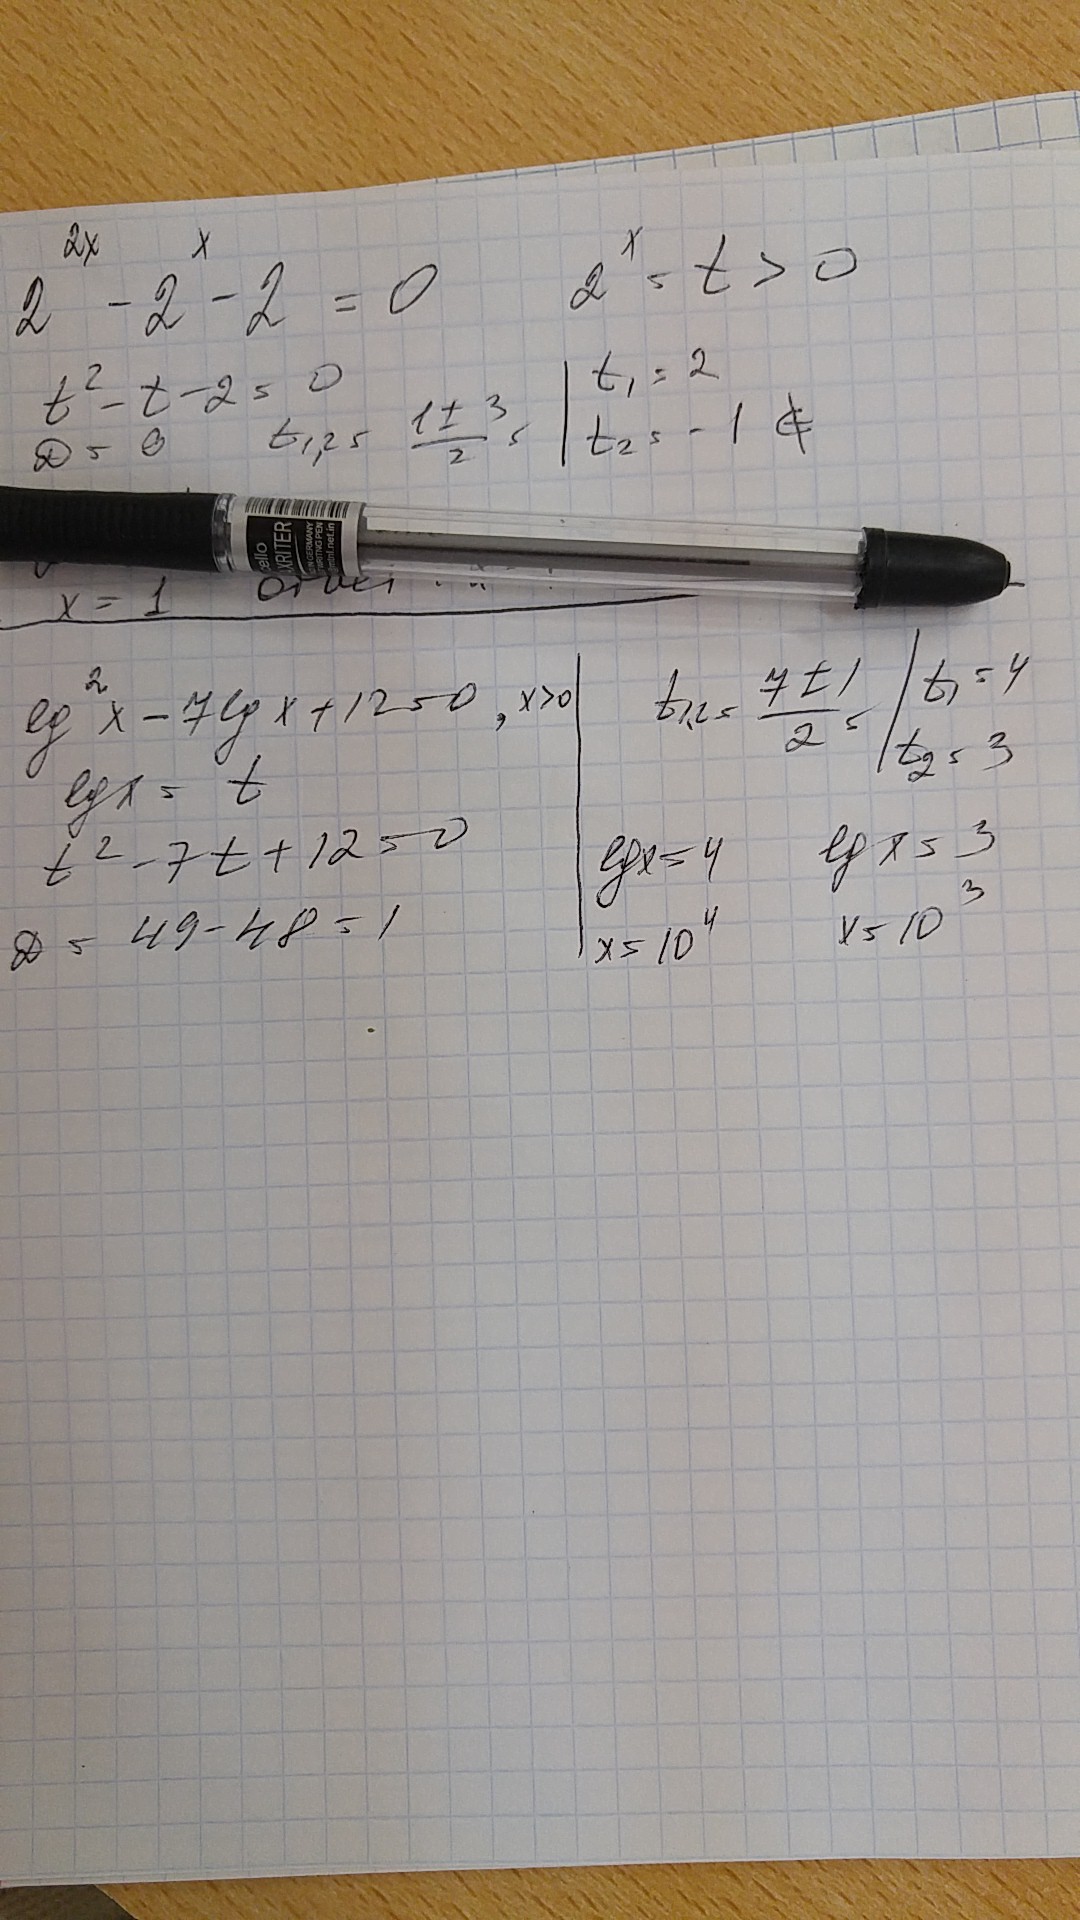 2^{2x} - 2^x - 2 = 0
2^x = t > 0
t^2 - t - 2 = 0
D = 9
t_{1,2} = \frac{1 ± 3}{2} =
t_1 = 2
t_2 = -1 ∉
x = 1
lg^2 x - 7 lg x + 12 = 0, x > 0
lg x = t
t^2 - 7t + 12 = 0
D = 49 - 48 = 1
t_{1,2} = \frac{7 ± 1}{2} =
t_1 = 4
t_2 = 3
lg x = 4
lg x = 3
x = 10^4
x = 10^3